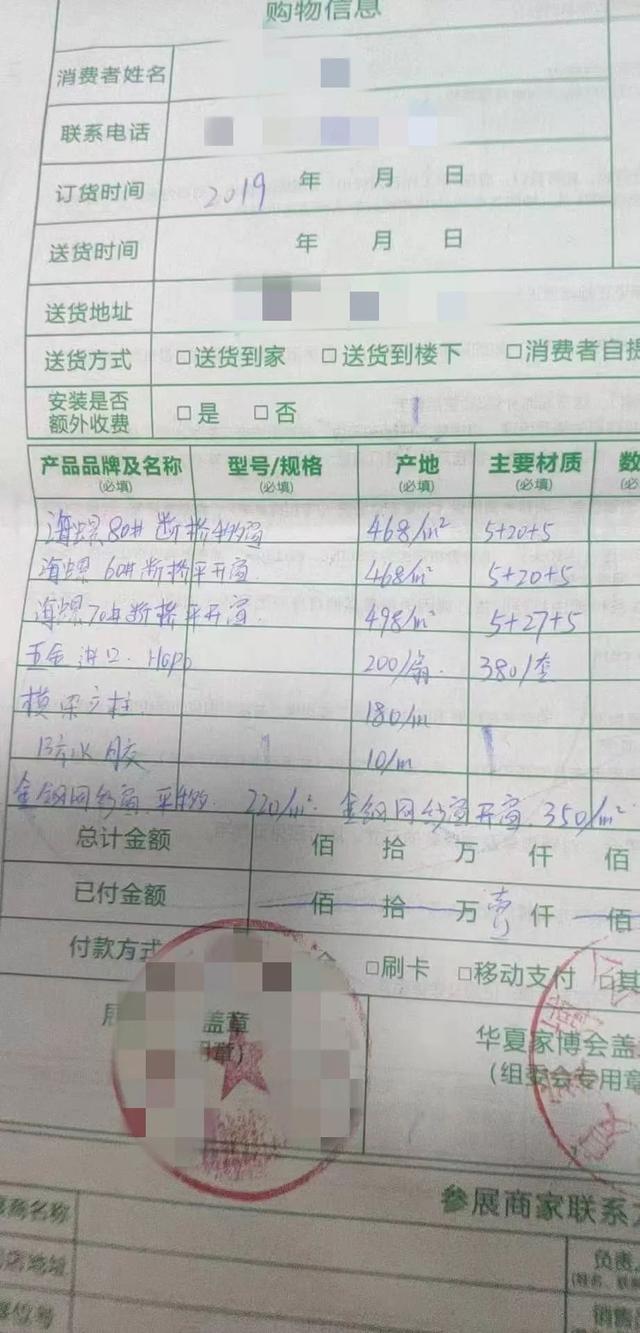 购物信息
消费者姓名
联系电话
订货时间 2019 年 月 日
送货时间 年 月 日
送货地址
送货方式 □送货到家 □送货到楼下 □消费者自提
安装是否额外收费 □是 □否
产品品牌及名称(必填) 型号/规格(必填) 产地(必填) 主要材质(必填) 数
海螺80#断桥平移窗 468/m² 5+20+5
海螺60#断桥平开窗 468/m² 5+20+5
海螺70#断桥平开窗 498/m² 5+27+5
五金进口.Hopo 200/扇. 380/套
横梁立柱 180/m
防水胶 10/m
金钢网纱窗.平移 220/m². 金钢网纱窗开窗.350/m²
总计金额 佰 拾 万 仟 佰
已付金额 佰 拾 万 壹 仟 佰
付款方式 □刷卡 □移动支付 □其
展 盖章 华夏家博会盖
用章) (组委会专用章
参展商家联系
商名称 负责
销售